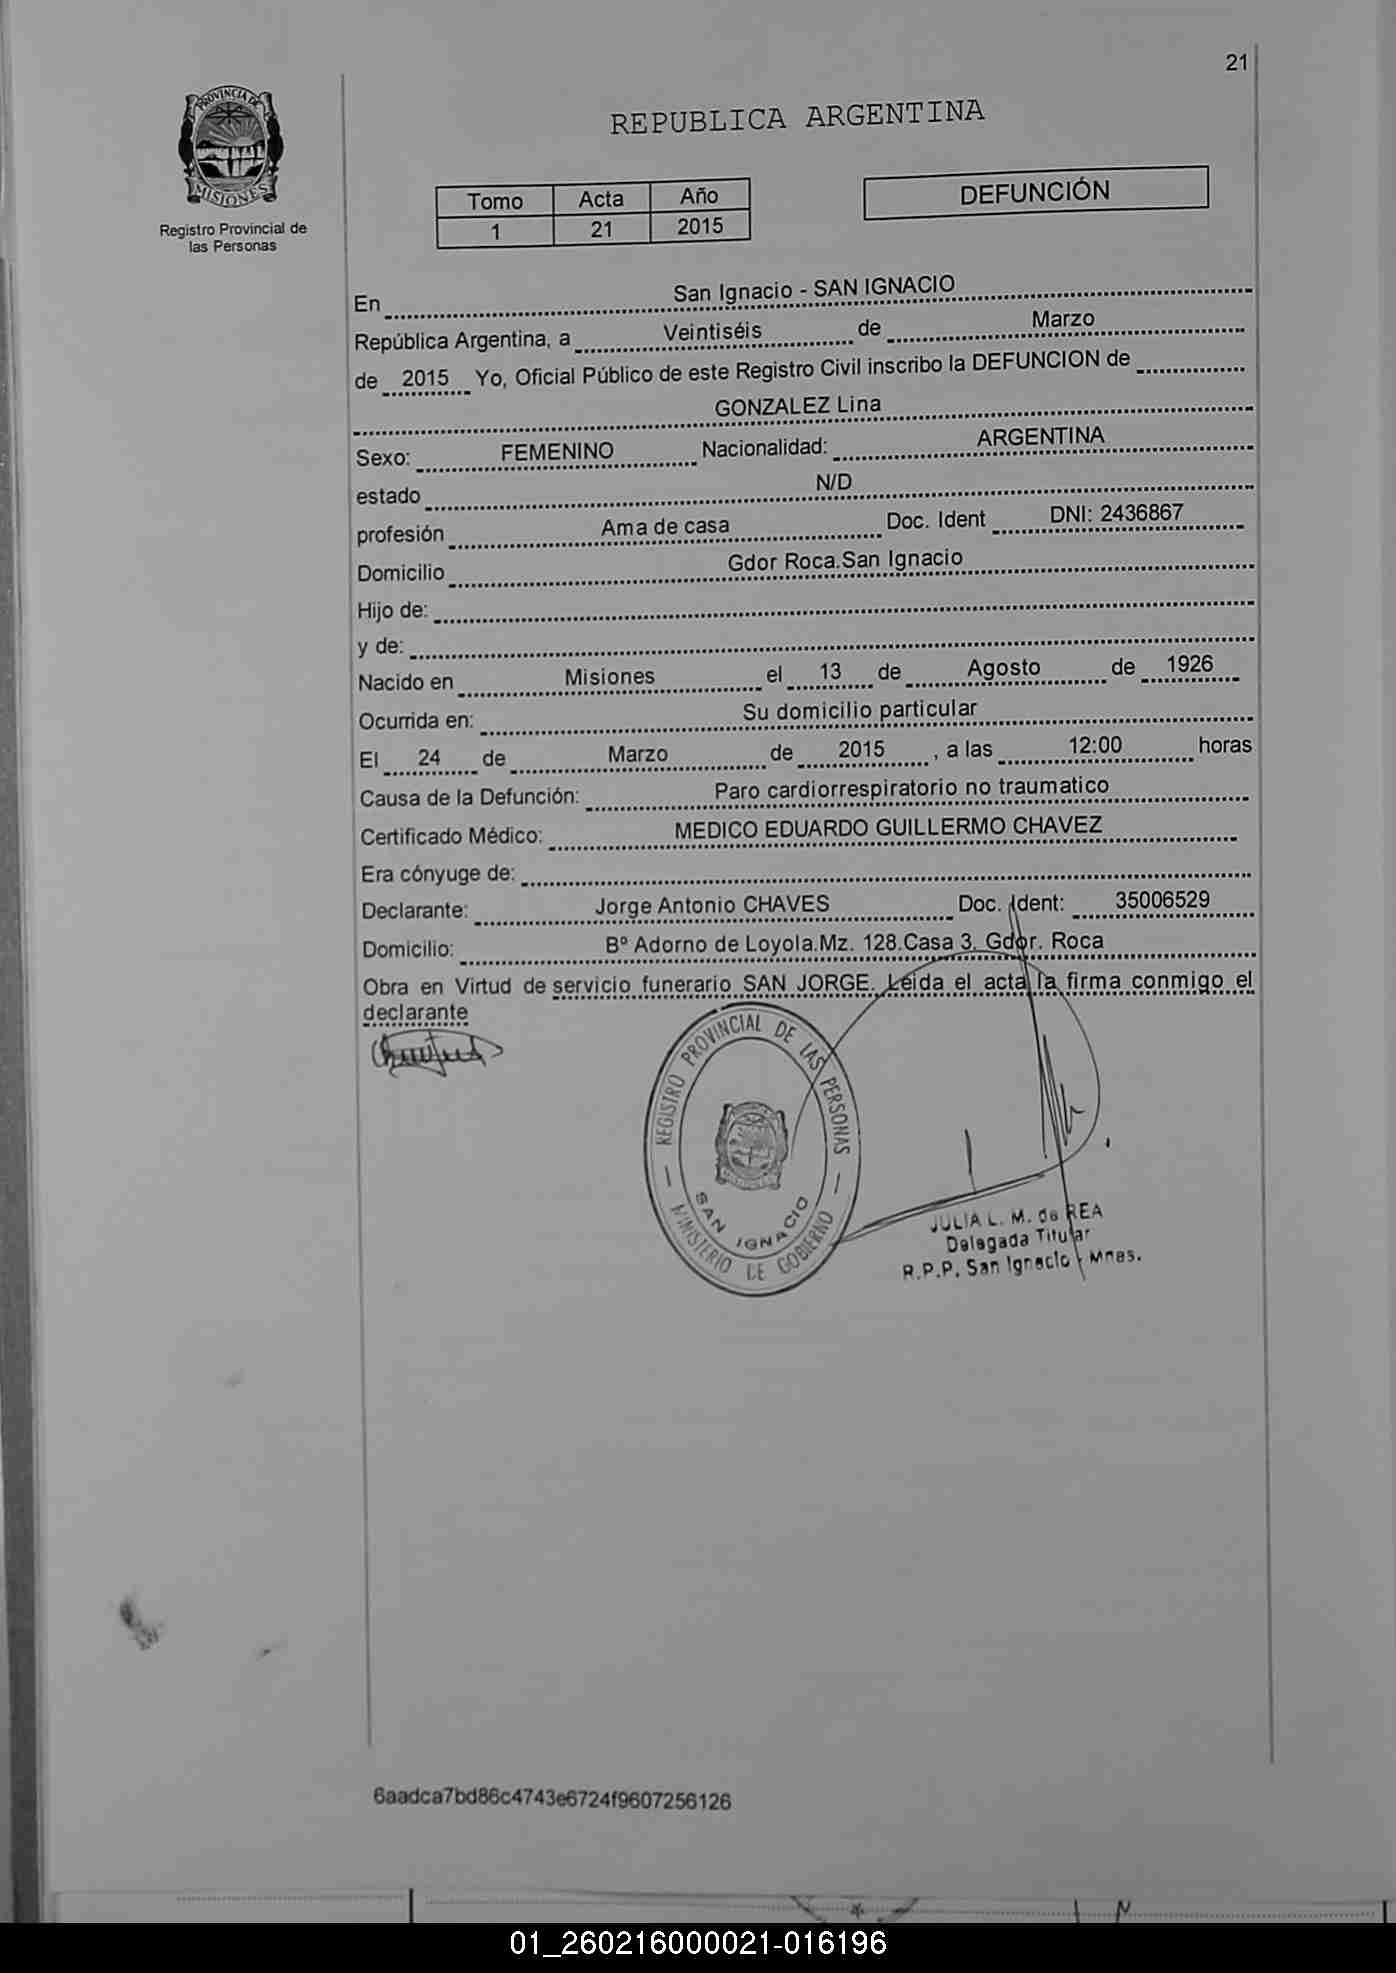 21
PROVINCIA DE
MISIONES
Registro Provincial de
las Personas
REPUBLICA ARGENTINA
Tomo Acta Año
1 21 2015
DEFUNCIÓN
En San Ignacio - SAN IGNACIO
República Argentina, a Veintiséis de Marzo
de 2015 Yo, Oficial Público de este Registro Civil inscribo la DEFUNCION de
GONZALEZ Lina
Sexo: FEMENINO Nacionalidad: ARGENTINA
estado N/D
profesión Ama de casa Doc. Ident DNI: 2436867
Domicilio Gdor Roca.San Ignacio
Hijo de:
y de:
Nacido en Misiones el 13 de Agosto de 1926
Ocurrida en: Su domicilio particular
El 24 de Marzo de 2015 , a las 12:00 horas
Causa de la Defunción: Paro cardiorrespiratorio no traumatico
Certificado Médico: MEDICO EDUARDO GUILLERMO CHAVEZ
Era cónyuge de:
Declarante: Jorge Antonio CHAVES Doc. Ident: 35006529
Domicilio: Bº Adorno de Loyola.Mz. 128.Casa 3. Gdor. Roca
Obra en Virtud de servicio funerario SAN JORGE. Leida el acta la firma conmigo el
declarante
REGISTRO PROVINCIAL DE LAS PERSONAS
SAN IGNACIO
MINISTERIO DE GOBIERNO
JULIA L. M. de REA
Delegada Titular
R.P.P. San Ignacio - Mnes.
6aadca7bd86c4743e6724f9607256126
01_260216000021-016196